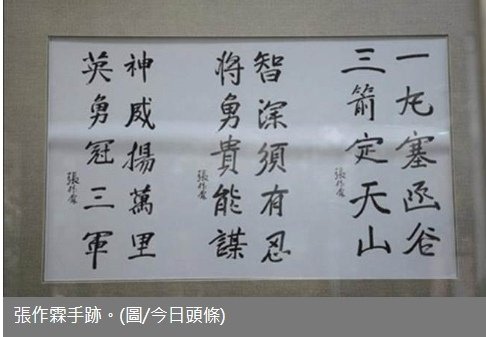 一丸塞函谷
三箭定天山
張作霖
智深須有忍
將勇貴能謀
張作霖
神威揚萬里
英勇冠三軍
張作霖
張作霖手跡。(圖/今日頭條)